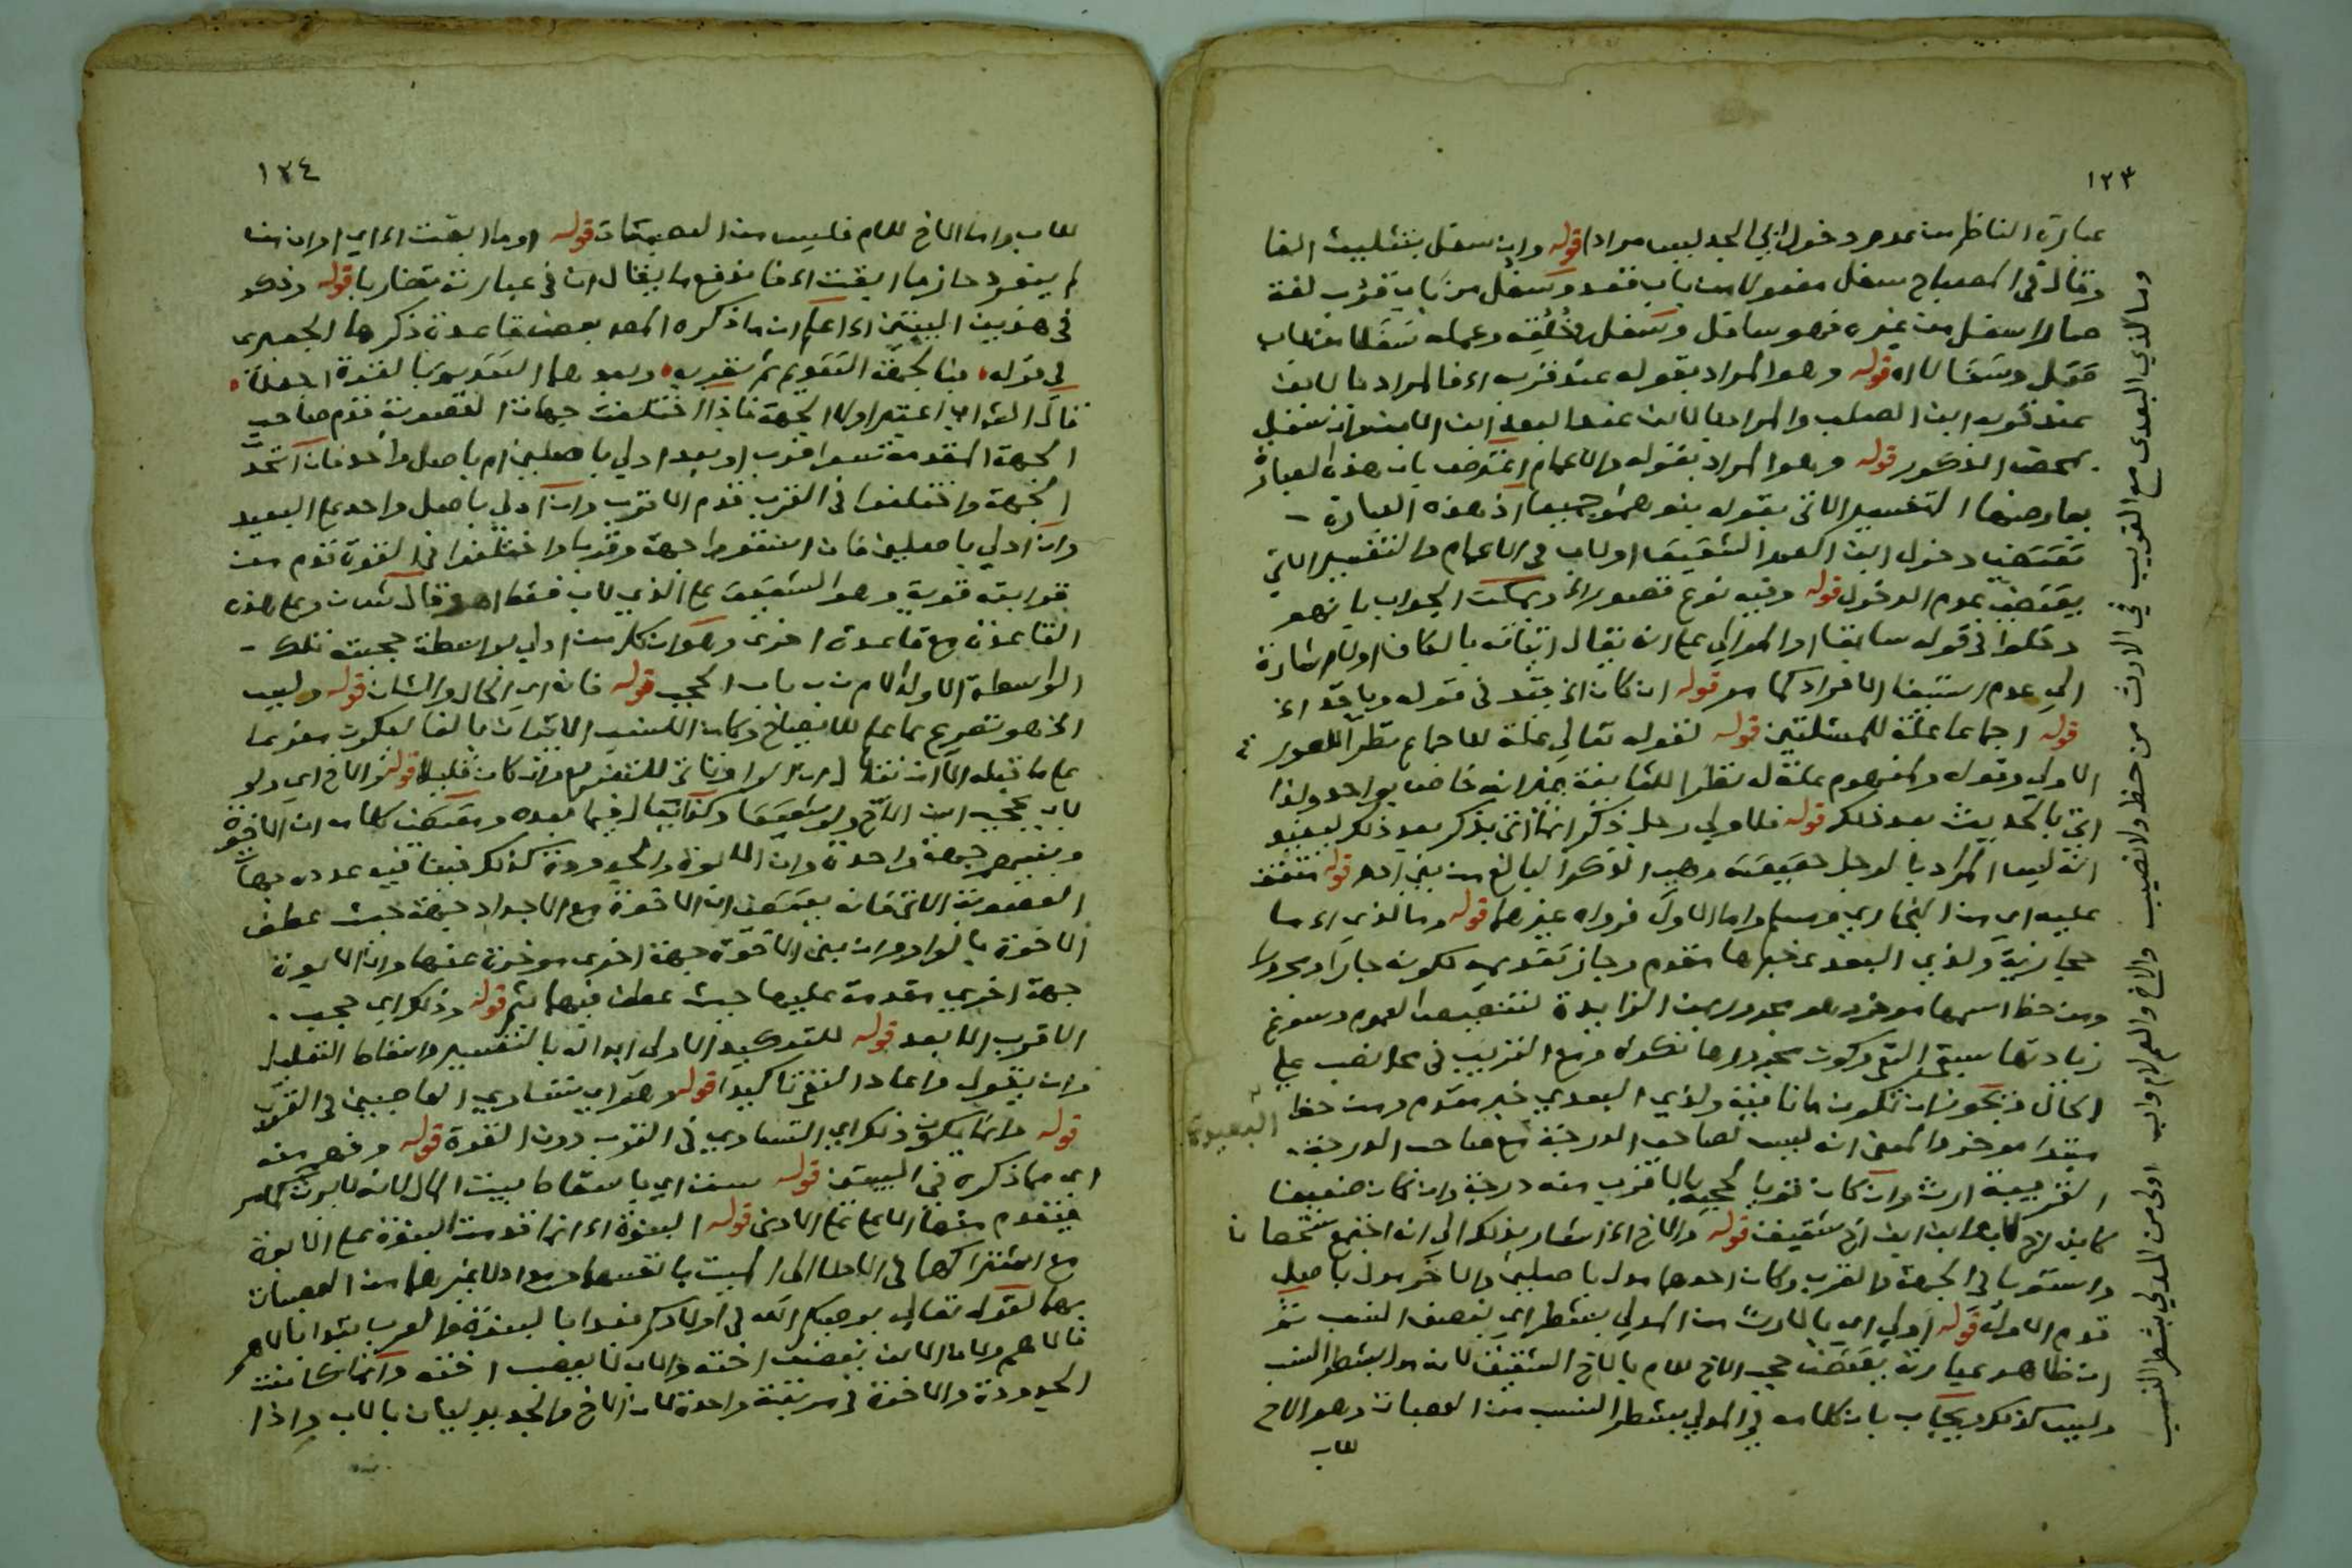 ١٢٣
عبارة الناظم من عدم دخول ابي الجد ليس مرادا قوله وابن سفل بتثليث الفا
وقال في المصباح سفل سفولا من باب قعد وسفل من باب قرب لغة
صار اسفل من غيره فهو سافل وسفل في خلقه وعمله سفلا من باب
قتل وسفالا اه قوله وهو المراد بقوله عند قربه اه فالمراد بالابن
عند قوله ابن الصلب والمراد بالابن عند البعد ابن الابن وان سفل
بمحض الذكور قوله وهو المراد بقوله والاعمام اعترض بان هذه العبارة
يعارضها التفسير الاتي بقوله بنوهم جميعا اذ هذه العبارة
تقتضي دخول ابن العم الشقيق او لاب في الاعمام والتفسير الاتي
يقتضي عدم الدخول قوله وفيه نوع قصور الخ ويمكن الجواب بانهم
دخلوا في قوله سابقا والموالي على ان يقال اتيانه بالكاف اولا اشارة
الي عدم استيفا الافراد كما مر قوله ان كان الخ قيد في قوله وباقي الخ
قوله اجماعا علة للمسئلتين قوله لقوله تعالي علة للاجماع نظرا للصورة
الاولي وقوله والمفهوم علة له نظرا للثانية غير انه خاص بواحد ولذا
اتي بالحديث بعد ذلك قوله فلاولي رجل ذكر انما اتي بذكر بعد ذلك ليفيد
انه ليس المراد بالرجل حقيقته وهي الذكر البالغ من بني ادم قوله متفق
عليه اي من البخاري ومسلم واما الاول فرواه غيرهما قوله وما لذي اه ما
حجازية ولذي البعد خبرها مقدم وجاز تقديمه لكونه جارا ومجرورا
ومن حظ اسمها موخر وهو مجرور بمن الزايدة لتنصيص العموم وسوغ
زيادتها سبق النفي وكون مجرورها نكرة ومع القريب في محل نصب علي
الحال ويجوز ان تكون ما نافية ولذي البعدي خبر مقدم ومن حظ
مبتدا موخر والمعنى انه ليس لصاحب الدرجة البعيدة مع صاحب الدرجة
القريبة ارث وان كان قويا لحجبه بالاقرب منه درجة وان كان ضعيفا
كابن اخ لاب وابن ابن اخ شقيق قوله والاخ الخ اشار بذلك الي انه اذا اجتمع شخصان
واستويا في الجهة والقرب وكان احدهما مدل باصلين والاخر مدل باصل
قدم الاول قوله اولي اي بالارث من المدلي بشطر اي بنصف النسب ثم
ان ظاهر عبارته يقتضي حجب الاخ للام بالاخ الشقيق لانه مدل بشطر النسب
وليس كذلك ويجاب بان كلامه في المدلي بشطر النسب من العصبات وهو الاخ
للاب
وما لذي البعدى مع القريب في الارث من حظ ولا نصيب والاخ والعم لام واب اولى من المدلي بشطر النسب
١٢٤
للاب واما الاخ للام فليس من العصبات قوله
لم ينفرد حاز ما ابقت اه فاندفع ما يقال ان في عبارته تضاربا قوله وذكر
في هذين البيتين اه اعلم ان ما ذكره المصنف بعض قاعدة ذكرها الجعبري
في قوله فبالجهة التقديم ثم بقربه وبعدهما التقديم بالقوة اجعلا
فاذا اختلفت جهات العصوبة قدم صاحب
الجهة المقدمة سوا قرب او بعد ادلي باصلين ام باصل واحد فان اتحدت
الجهة واختلفوا في القرب قدم الاقرب وان ادلي باصل واحد على البعيد
وان ادلي باصلين فان استووا جهة وقربا واختلفوا في القوة قدم من
قرابته قوية وهو الشقيق على الذي لاب فقط اه وعلى هذه
القاعدة مع قاعدة اخرى وهو ان كل من ادلي بواسطة حجبته تلك
الواسطة الا ولد الام باب الحجب قوله فان اي الحال والشان قوله وليس
الخ هو تفريع عما علم للايضاح وكان الانسب الاتيان بالفا ليكون مفرعا
على ما قبله الا ان يقال ان الواو تاتي للتفريع وان كان قليلا قوله والاخ اي ولو
لاب يحجب ابن الاخ ولو شقيقا وكذا يقال فيما بعده ومقتضى كلامه ان الاخوة
وبنيهم جهة واحدة وان الابوة والجدودة كذلك فينافيه عدده جهات
العصوبة الاتي فانه يقتضي ان الاخوة مع الاجداد جهة حيث عطف
الاخوة بالواو وان بني الاخوة جهة اخرى موخرة عنها وان الابوة
جهة اخرى مقدمة عليها حيث عطف فيها بثم قوله وذلك اي حجب
الاقرب الابعد قوله للتوكيد الاولى ابداله بالتفسير واسقاط التعليل
وان يقول واعاد النفي تاكيدا قوله وهو اي تساوي العاصبين في القرب
قوله وانما يكون ذلك اي التساوي في القرب دون القوة قوله وفهم منه
اي مما ذكره في البيتين قوله ست اي باسقاط بيت المال لانه لا يرث
فيقدم منها الاعلى على الادنى قوله البنوة اه انما قدمت البنوة على الابوة
مع اشتراكهما في الادلا الى الميت بانفسهما وعدم ادلا غيرهما من العصبات
بهما لقوله تعالى يوصيكم الله في اولادكم فبدا بالبنوة والعرب تبدا بالاهم
فالاهم ولان الابن يعصب اخته والاب لا يعصب اخته وانما كانت
الجدودة والاخوة في مرتبة واحدة لان الاخ والجد يدليان بالاب واذا